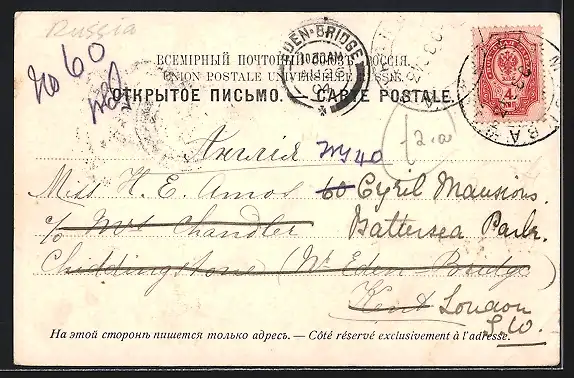 Russia
No 60
EDENBRIDGE
ВСЕМІРНЫЙ ПОЧТОВЫЙ СОЮЗЪ. РОССІЯ.
UNION POSTALE UNIVERSELLE. RUSSIE.
ОТКРЫТОЕ ПИСЬМО. — CARTE POSTALE.
Англія
Miss H. E. Amos 60 Cyril Mansions.
c/o Mrs Chandler Battersea Park.
Chiddingstone (Nr Eden-Bridge)
Kent London
S.W.
На этой сторонѣ пишется только адресъ. — Côté réservé exclusivement à l'adresse.